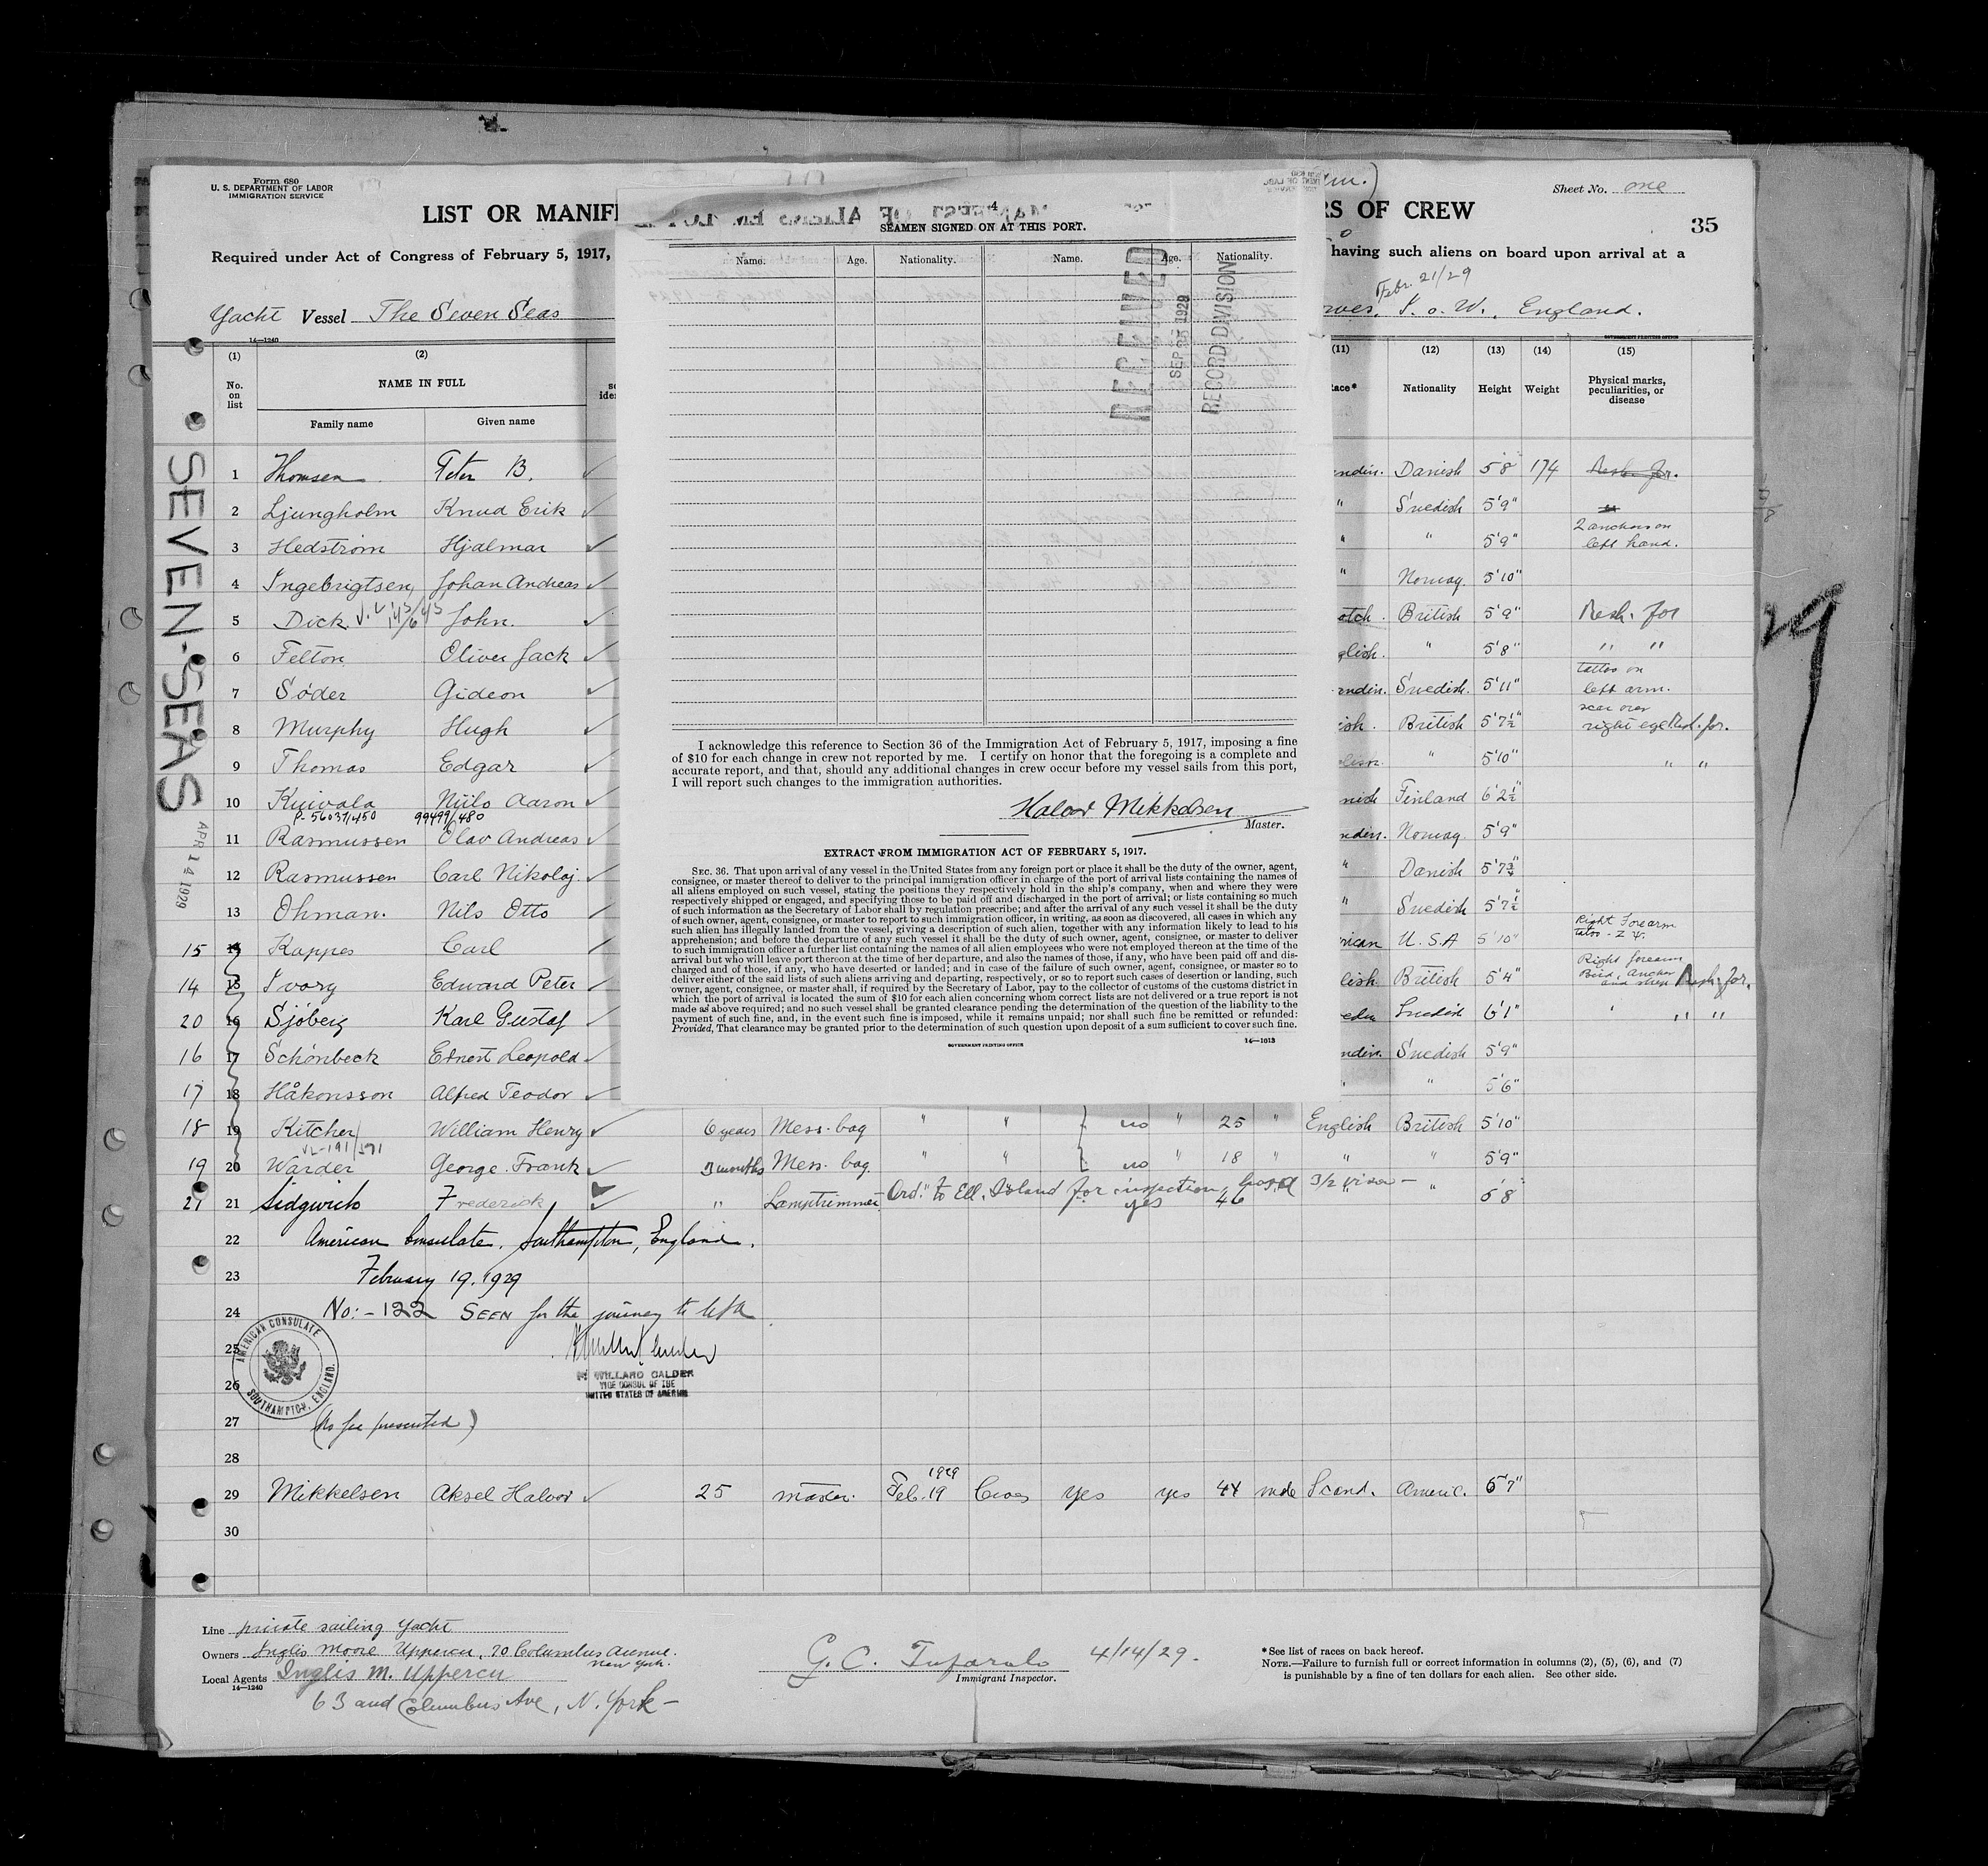 Form 680
U. S. DEPARTMENT OF LABOR
IMMIGRATION SERVICE
Sheet No. one
35
LIST OR MANIF
RS OF CREW
Required under Act of Congress of February 5, 1917,
having such aliens on board upon arrival at a
Febr. 21/29
Yacht Vessel The Seven Seas
I. o. W., England.
14—1240
GOVERNMENT PRINTING OFFICE
(1) (2) (11) (12) (13) (14) (15)
No. on list
NAME IN FULL
Family name Given name
Nationality Height Weight Physical marks, peculiarities, or disease
SEVEN-SEAS
APR 14 1929
1 Thomsen Peter B. Danish 5'8 174
2 Ljungholm Knud Erik " Swedish 5'9"
3 Hedström Hjalmar " " 5'9" 2 anchors on left hand.
4 Ingebrigtsen, Johan Andreas " Norway. 5'10"
5 Dick. John. otch. British 5'9"
6 Felton Oliver Jack glish. " 5'8" " "
7 Söder Gideon ndin. Swedish. 5'11" tattoo on left arm.
8 Murphy Hugh ish. British 5'7½" scar over right eye
9 Thomas Edgar " 5'10" " "
10 Kuivala Niilo Aaron Finland 6'2½"
P-56037/450 99499/480
11 Rasmussen Olav Andreas ndin. Norway. 5'9"
12 Rasmussen Carl Nikolaj. " Danish 5'7¾"
13 Ohman. Nils Otto " Swedish 5'7½"
15 14 Kappes Carl rican U.S.A 5'10" Right Forearm
14 15 Ivory Edward Peter lish. British 5'4" Right forearm Bird, Anchor and ship
20 16 Sjöberg Karl Gustaf Swedish 6'1" " "
16 17 Schönbeck Ernest Leopold ndin. Swedish 5'9"
17 18 Håkonsson Alfred Teodor " 5'6"
18 19 Kitcher William Henry 6 years Mess. boy " " no " 25 " English British 5'10"
VL-191/571
19 20 Warder George. Frank 3 months Mess. boy. " " no " 18 " " " 5'9"
21 21 Sidgwick Frederick " Lamptrimmer Ord. to Ell. Island for inspection, yes 46 " " 5'8
22 American Consulate, Southampton, England.
23 February 19, 1929
24 No:- 122 SEEN for the journey to USA
25
26
AMERICAN CONSULATE
SOUTHAMPTON, ENGLAND.
WILLARD CALDER
VICE CONSUL OF THE
UNITED STATES OF AMERICA
27 (No fee presented)
28
29 Mikkelsen Aksel Halvor 25 master. Feb. 19 1929 Cowes yes yes 44 male Scand. Americ. 5'7"
30
Line private sailing yacht
Owners Inglis Moore Uppercu, 70 Columbus Avenue.
New York.
Local Agents Inglis M. Uppercu
14—1240
63 and Columbus Ave, N. York—
4/14/29.
Immigrant Inspector.
*See list of races on back hereof.
NOTE.—Failure to furnish full or correct information in columns (2), (5), (6), and (7)
is punishable by a fine of ten dollars for each alien. See other side.
4
SEAMEN SIGNED ON AT THIS PORT.
Name. Age. Nationality. Name. Age. Nationality.
RECEIVED
SEP 1929
RECORD DIVISION
I acknowledge this reference to Section 36 of the Immigration Act of February 5, 1917, imposing a fine
of $10 for each change in crew not reported by me. I certify on honor that the foregoing is a complete and
accurate report, and that, should any additional changes in crew occur before my vessel sails from this port,
I will report such changes to the immigration authorities.
Halvor Mikkelsen
Master.
EXTRACT FROM IMMIGRATION ACT OF FEBRUARY 5, 1917.
SEC. 36. That upon arrival of any vessel in the United States from any foreign port or place it shall be the duty of the owner, agent,
consignee, or master thereof to deliver to the principal immigration officer in charge of the port of arrival lists containing the names of
all aliens employed on such vessel, stating the positions they respectively hold in the ship's company, when and where they were
respectively shipped or engaged, and specifying those to be paid off and discharged in the port of arrival; or lists containing so much
of such information as the Secretary of Labor shall by regulation prescribe; and after the arrival of any such vessel it shall be the duty
of such owner, agent, consignee, or master to report to such immigration officer, in writing, as soon as discovered, all cases in which any
such alien has illegally landed from the vessel, giving a description of such alien, together with any information likely to lead to his
apprehension; and before the departure of any such vessel it shall be the duty of such owner, agent, consignee, or master to deliver
to such immigration officer a further list containing the names of all alien employees who were not employed thereon at the time of the
arrival but who will leave port thereon at the time of her departure, and also the names of those, if any, who have been paid off and dis-
charged and of those, if any, who have deserted or landed; and in case of the failure of such owner, agent, consignee, or master so to
deliver either of the said lists of such aliens arriving and departing, respectively, or so to report such cases of desertion or landing, such
owner, agent, consignee, or master shall, if required by the Secretary of Labor, pay to the collector of customs of the customs district in
which the port of arrival is located the sum of $10 for each alien concerning whom correct lists are not delivered or a true report is not
made as above required; and no such vessel shall be granted clearance pending the determination of the question of the liability to the
payment of such fine, and, in the event such fine is imposed, while it remains unpaid; nor shall such fine be remitted or refunded:
Provided, That clearance may be granted prior to the determination of such question upon deposit of a sum sufficient to cover such fine.
GOVERNMENT PRINTING OFFICE
14—1013